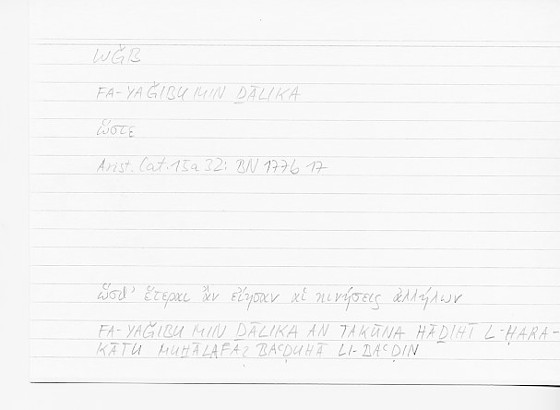 WǦB
FA-YAǦIBU MIN ḎĀLIKA
ὥστε
Arist. Cat. 15a32; BN 177b 17
ὥσθ' ἕτεραι ἂν εἴησαν αἱ κινήσεις ἀλλήλων
FA-YAǦIBU MIN ḎĀLIKA AN TAKŪNA HĀḎIHĪ L-ḤARA-
KĀTU MUḪĀLAFA2 BAʿḌUHĀ LI-BAʿḌIN